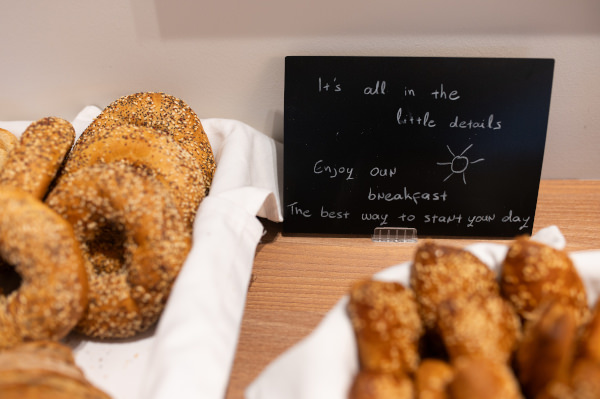 It's all in the
little details
Enjoy our
breakfast
The best way to start your day